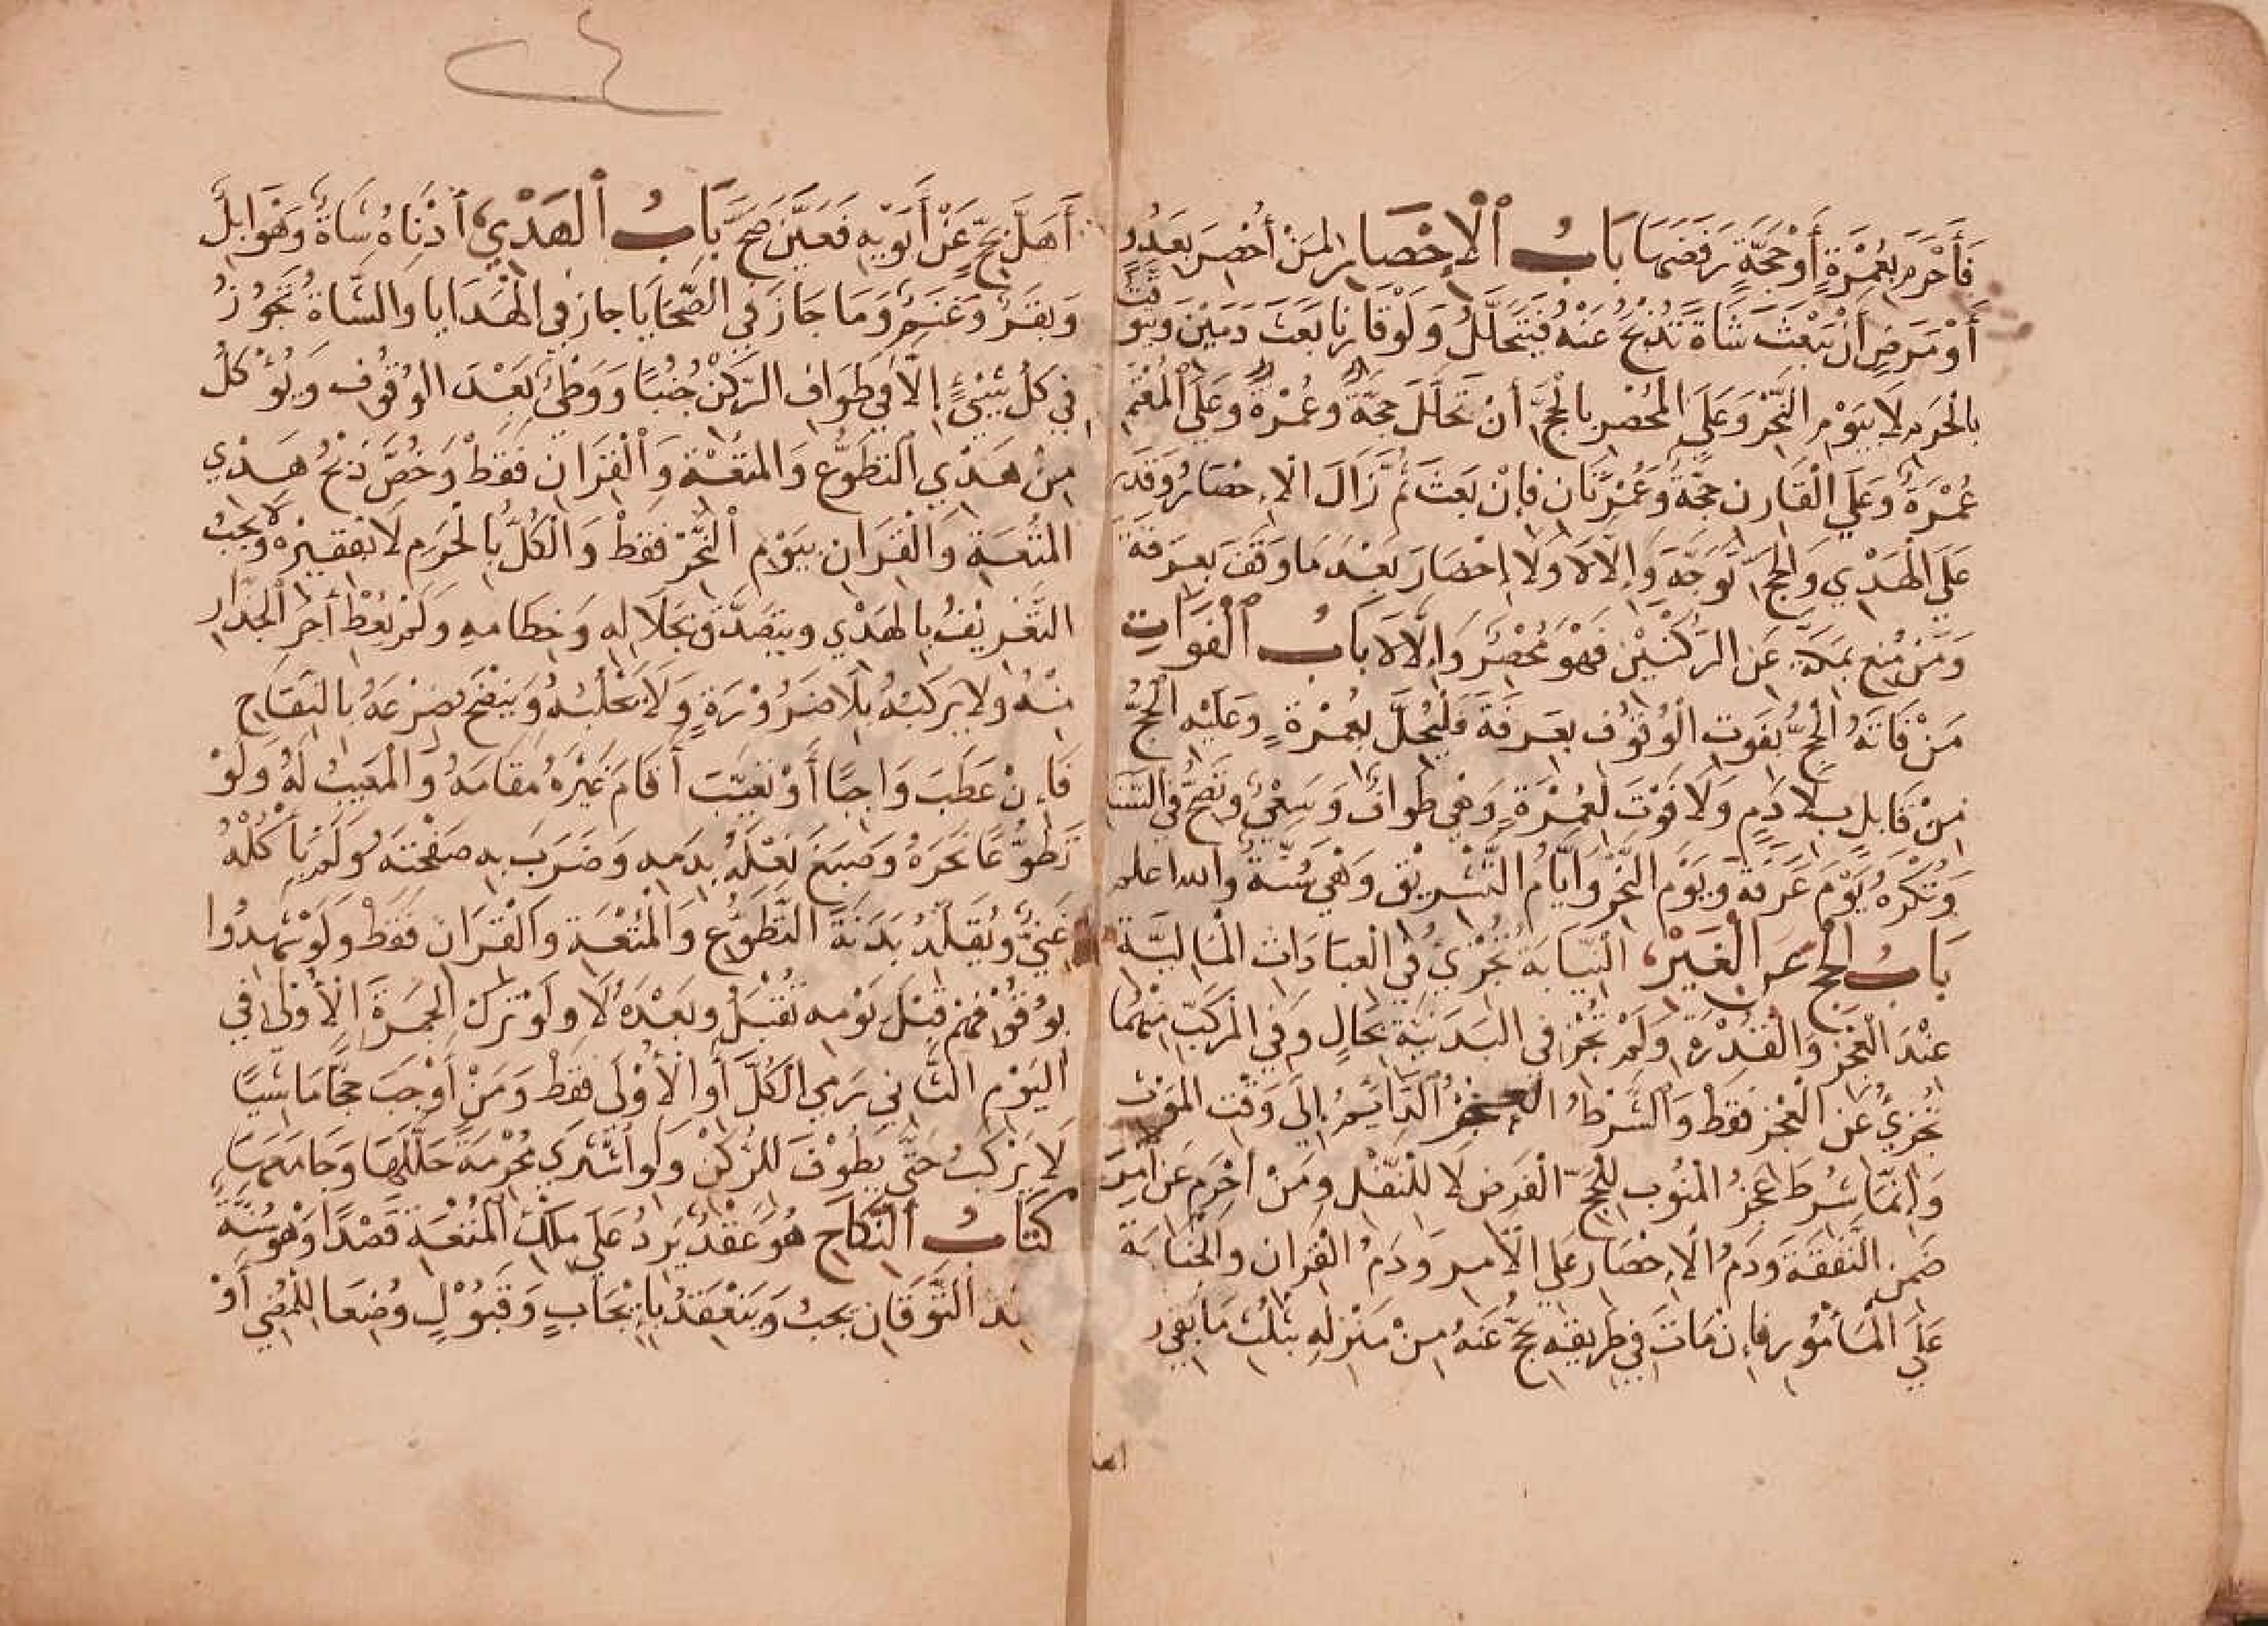 فَأَحْرَمَ بِعُمْرَةٍ أَوْ حَجَّةٍ رَفَضَهَا بَابُ ٱلْإِحْصَارِ لِمَنْ أُحْصِرَ بِعَدُوٍّ
أَوْ مَرَضٍ أَنْ يَبْعَثَ شَاةً تُذْبَحُ عَنْهُ فَيَتَحَلَّلُ وَلَوْ قَارِنًا بَعَثَ دَمَيْنِ وَيَتَوَقَّتُ
بِالْحَرَمِ لَا بِيَوْمِ النَّحْرِ وَعَلَى الْمُحْصَرِ بِالْحَجِّ أَنْ تَحَلَّلَ حَجَّةٌ وَعُمْرَةٌ وَعَلَى الْمُعْتَمِرِ
عُمْرَةٌ وَعَلَى الْقَارِنِ حَجَّةٌ وَعُمْرَتَانِ فَإِنْ بَعَثَ ثُمَّ زَالَ الْإِحْصَارُ وَقَدَرَ
عَلَى الْهَدْيِ وَالْحَجِّ تَوَجَّهَ وَإِلَّا لَا وَلَا إِحْصَارَ بَعْدَ مَا وَقَفَ بِعَرَفَةَ
وَمَنْ مُنِعَ بِمَكَّةَ عَنِ الرُّكْنَيْنِ فَهْوَ مُحْصَرٌ وَإِلَّا لَا بَابُ ٱلْفَوَاتِ
مَنْ فَاتَهُ الْحَجُّ بِفَوْتِ الْوُقُوفِ بِعَرَفَةَ فَلْيُحِلَّ بِعُمْرَةٍ وَعَلَيْهِ الْحَجُّ
مِنْ قَابِلٍ بِلَا دَمٍ وَلَا فَوْتَ لِعُمْرَةٍ وَهِيَ طَوَافٌ وَسَعْيٌ وَتَصِحُّ فِي السَّنَةِ
وَتُكْرَهُ يَوْمَ عَرَفَةَ وَيَوْمَ النَّحْرِ وَأَيَّامَ التَّشْرِيقِ وَهْيَ سُنَّةٌ والله اعلم
بَابُ الْحَجِّ عَنِ الْغَيْرِ النِّيَابَةُ تُجْزِئُ فِي الْعِبَادَاتِ الْمَالِيَّةِ
عِنْدَ الْعَجْزِ وَالْقُدْرَةِ وَلَمْ تُجْزِ فِي الْبَدَنِيَّةِ بِحَالٍ وَفِي الْمُرَكَّبِ مِنْهُمَا
تُجْزِئُ عَنِ الْعَجْزِ فَقَطْ وَالشَّرْطُ الْعَجْزُ الدَّائِمُ إِلَى وَقْتِ الْمَوْتِ
وَإِنَّمَا شُرِطَ عَجْزُ الْمَنُوبِ لِلْحَجِّ الْفَرْضِ لَا لِلنَّفْلِ وَمَنْ أَحْرَمَ عَنْ آمِرَيْهِ
ضَمِنَ النَّفَقَةَ وَدَمُ الْإِحْصَارِ عَلَى الْآمِرِ وَدَمُ الْقِرَانِ وَالْجِنَايَةِ
عَلَى الْمَأْمُورِ فَإِنْ مَاتَ فِي طَرِيقِهِ يُحَجُّ عَنْهُ مِنْ مَنْزِلِهِ بِثُلُثِ مَا بَقِيَ
أَهَلَّ بِحَجٍّ عَنْ أَبَوَيْهِ فَعَيَّنَ صَحَّ بَابُ ٱلْهَدْيِ أَدْنَاهُ شَاةٌ وَهْوَ إِبِلٌ
وَبَقَرٌ وَغَنَمٌ وَمَا جَازَ فِي الضَّحَايَا جَازَ فِي الْهَدَايَا وَالشَّاةُ تَجُوزُ
فِي كُلِّ شَيْئٍ إِلَّا فِي طَوَافِ الرُّكْنِ جُنُبًا وَوَطْئٍ بَعْدَ الْوُقُوفِ وَيُؤْكَلُ
مِنْ هَدْيِ التَّطَوُّعِ وَالْمُتْعَةِ وَالْقِرَانِ فَقَطْ وَخُصَّ ذَبْحُ هَدْيِ
الْمُتْعَةِ وَالْقِرَانِ بِيَوْمِ النَّحْرِ فَقَطْ وَالْكُلُّ بِالْحَرَمِ لَا بِفَقِيرِهِ وَلَا يَجِبُ
التَّعْرِيفُ بِالْهَدْيِ وَيَتَصَدَّقُ بِجِلَالِهِ وَخِطَامِهِ وَلَمْ يُعْطَ أَجْرُ الْجَزَّارِ
مِنْهُ وَلَا يَرْكَبُهُ بِلَا ضَرُورَةٍ وَلَا يَحْلِبُهُ وَيَنْضَحُ ضَرْعَهُ بِالنُّقَاحِ
فَإِنْ عَطِبَ وَاجِبًا أَوْ تَعَيَّبَ أَقَامَ غَيْرَهُ مُقَامَهُ وَالْمَعِيبُ لَهُ وَلَوْ
تَطَوُّعًا نَحَرَهُ وَصَبَغَ نَعْلَهُ بِدَمِهِ وَضَرَبَ بِهِ صَفْحَتَهُ وَلَمْ يَأْكُلْهُ
غَنِيٌّ وَيُقَلَّدُ بَدَنَةُ التَّطَوُّعِ وَالْمُتْعَةِ وَالْقِرَانِ فَقَطْ وَلَوْ شَهِدُوا
بِوُقُوفِهِمْ قَبْلَ يَوْمِهِ تُقْبَلُ وَبَعْدَهُ لَا وَلَوْ تَرَكَ الْجَمْرَةَ الْأُولَى فِي
الْيَوْمِ الثَّانِي رَمَى الْكُلَّ أَوِ الْأُولَى فَقَطْ وَمَنْ أَوْجَبَ حَجًّا مَاشِيًا
لَا يَرْكَبُ حَتَّى يَطُوفَ لِلرُّكْنِ وَلَوِ اشْتَرَى مُحْرِمَةً حَلَّلَهَا وَجَامَعَهَا
كِتَابُ ٱلنِّكَاحِ هُوَ عَقْدٌ يَرِدُ عَلَى مِلْكِ الْمُتْعَةِ قَصْدًا وَهْوَ سُنَّةٌ
التَّوَقَانِ يَجِبُ وَيَنْعَقِدُ بِإِيْجَابٍ وَقَبُوْلٍ وُضِعَا لِلْمُضِيِّ أَوْ